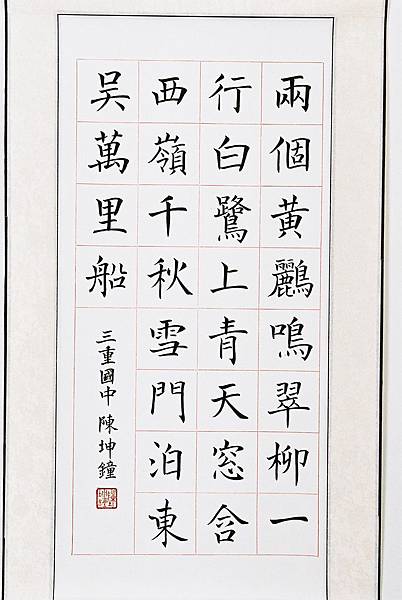 兩個黃鸝鳴翠柳一
行白鷺上青天窓含
西嶺千秋雪門泊東
吳萬里船
三重國中 陳坤鐘